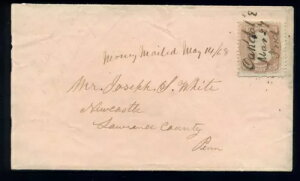 Money Mailed May 14/68
Mr. Joseph S. White
Newcastle
Lawrence County
Penn